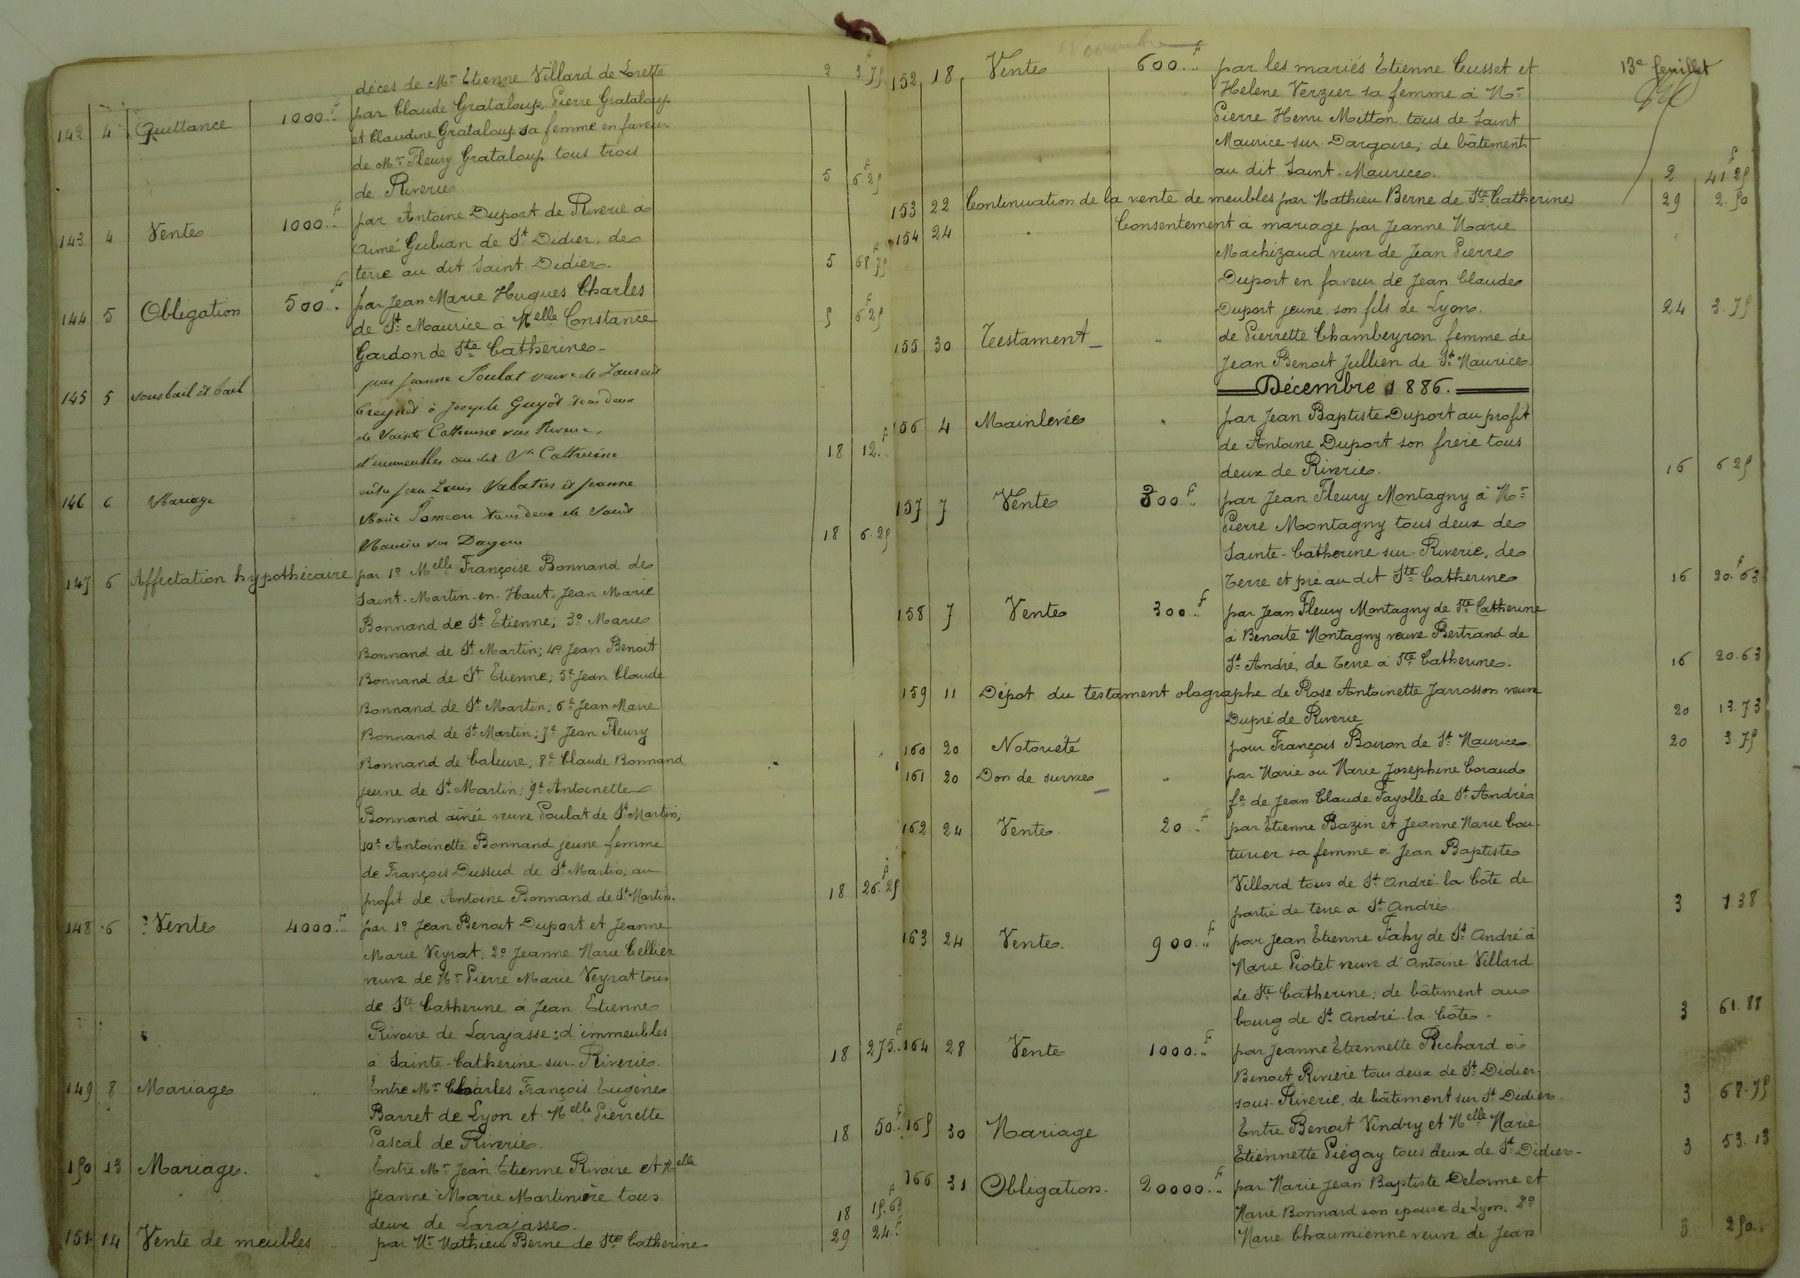 décès de Mr Etienne Villard de Lorette 2 3.75
142 4 Quittance 1000.. par Claude Grataloup, Pierre Grataloup
et Claudine Grataloup sa femme en faveur
de Mr Fleury Grataloup tous trois
de Riverie 5 6.25
143 4 Vente 1000.. par Antoine Duport de Riverie à
Aimé Guluan de St Didier, de
terre au dit Saint Didier. 5 68.75
144 5 Obligation 500.. par Jean Marie Hugues Charles
de St Maurice à Melle Constance 5 6.25
Gardon de Ste Catherine
145 5 sous bail et bail par Jeanne Poulat veuve de Laurent
à Joseph Guyot tous deux
de Sainte Catherine sur Riverie,
d'immeubles au dit Ste Catherine 18 12..
146 6 Mariage entre Jean Louis et Jeanne
Marie Poncon tous deux de Saint
Maurice sur Dargoire 18 6.25
147 6 Affectation hypothécaire par 1o Melle Françoise Bonnand de
Saint-Martin-en-Haut, Jean Marie
Bonnand de St Etienne; 3o Marie
Bonnand de St Martin; 4o Jean Benoit
Bonnand de St Etienne; 5o Jean Claude
Bonnand de St Martin; 6o Jean Marie
Bonnand de St Martin; 7o Jean Fleury
Bonnand de Caluire; 8o Claude Bonnand
jeune de St Martin; 9o Antoinette
Bonnand ainée veuve Poulat de St Martin;
10o Antoinette Bonnand jeune femme
de François Dussud de St Martin, au
profit de Antoine Bonnand de St Martin. 18 26.25
148 6 Vente 4000.. par 1o Jean Benoit Duport et Jeanne
Marie Veyrat; 2o Jeanne Marie Cellier
veuve de Mr Pierre Marie Veyrat tous
de Ste Catherine à Jean Etienne
Rivoire de Larajasse; d'immeubles
à Sainte-Catherine-sur-Riverie 18 275..
149 8 Mariage Entre Mr Charles François Eugène
Barret de Lyon et Melle Pierrette
Pascal de Riverie. 18 50..
150 13 Mariage. Entre Mr Jean Etienne Rivoire et Melle
Jeanne Marie Martinière tous
deux de Larajasse. 18 15.63
151 14 Vente de meubles par Mr Mathieu Berne de Ste Catherine 29 24..
Novembre
13e feuillet
152 18 Vente 600.. par les mariés Etienne Cusset et
Helene Verzier sa femme à Mr
Pierre Henri Mitton tous de Saint
Maurice-sur-Dargoire, de bâtiment
au dit Saint-Maurice. 2 41.25
153 22 Continuation de la vente de meubles par Mathieu Berne de Ste Catherine 29 2.50
154 24 Consentement à mariage par Jeanne Marie
Machizaud veuve de Jean Pierre
Duport en faveur de Jean Claude
Duport jeune son fils de Lyon. 24 3.75
155 30 Testament de Pierrette Chambeyron femme de
Jean Benoit Jullien de St Maurice
Décembre 1886.
156 4 Mainlevée par Jean Baptiste Duport au profit
de Antoine Duport son frere tous
deux de Riverie. 16 6.25
157 7 Vente 300.. par Jean Fleury Montagny à Mr
Pierre Montagny tous deux de
Sainte-Catherine-sur-Riverie, de
Terre et pré au dit Ste Catherine 16 20.63
158 7 Vente 300.. par Jean Fleury Montagny de Ste Catherine
à Benoite Montagny veuve Bertrand de
St André, de Terre à Ste Catherine. 16 20.63
159 11 Dépot du testament olographe de Rose Antoinette Jarrosson veuve
Dupré de Riverie 20 13.73
160 20 Notoriété pour François Boiron de St Maurice 20 3.75
161 20 Don de survie par Marie ou Marie Josephine Coraud
fe de Jean Claude Fayolle de St André
162 24 Vente 20.. par Etienne Bazin et Jeanne Marie Cou-
turier sa femme à Jean Baptiste
Villard tous de St André-la-Côte de
partie de terre à St André. 3 1.38
163 24 Vente. 900.. par Jean Etienne Fahy de St André à
Marie Piotet veuve d'Antoine Villard
de Ste Catherine; de bâtiment au
bourg de St André-la-Côte. 3 61.88
164 28 Vente 1000.. par Jeanne Etiennette Richard à
Benoit Rivière tous deux de St Didier-
sous-Riverie, de bâtiment sur St Didier. 3 68.75
165 30 Mariage Entre Benoit Vindry et Melle Marie
Etiennette Piégay tous deux de St Didier- 3 53.13
166 31 Obligation. 20000.. par Marie Jean Baptiste Delorme et
Marie Bonnard son epouse de Lyon, 2o
Marie Chaumienne veuve de Jean 3 250..